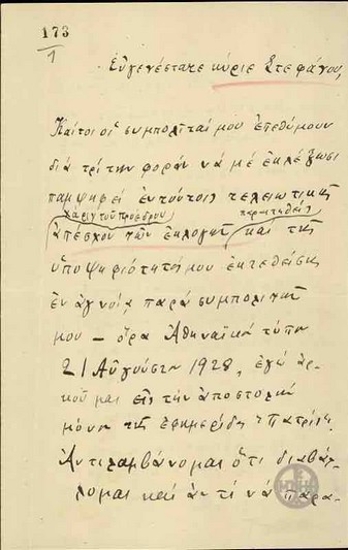 173
1
Εὐγενέστατε κύριε Στεφάνου,
Καίτοι οἱ συμπολῖταί μου ἐπεθύμουν
διὰ τρίτην φορὰν νὰ μὲ ἐκλέξωσι
παμψηφεὶ ἐντούτοις τελειωτικῶς
χάριν τοῦ προέδρου παραιτηθεὶς
ἀπέσχον τῶν ἐκλογῶν καὶ τῆς
ὑποψηφιότητός μου ἐκτεθείσης
ἐν ἀγνοίᾳ παρὰ συμπολιτῶν
μου — ὅρα Ἀθηναϊκὸν τύπον
21 Αὐγούστου 1928, ἐγὼ ἀρ-
κοῦμαι εἰς τὴν ἀποστολὴν
μόνον τῆς ἐφημερίδος "Πατρίς".
Ἀντιλαμβάνομαι ὅτι διαβάλ-
λομαι καὶ ἀντὶ νὰ παρα-